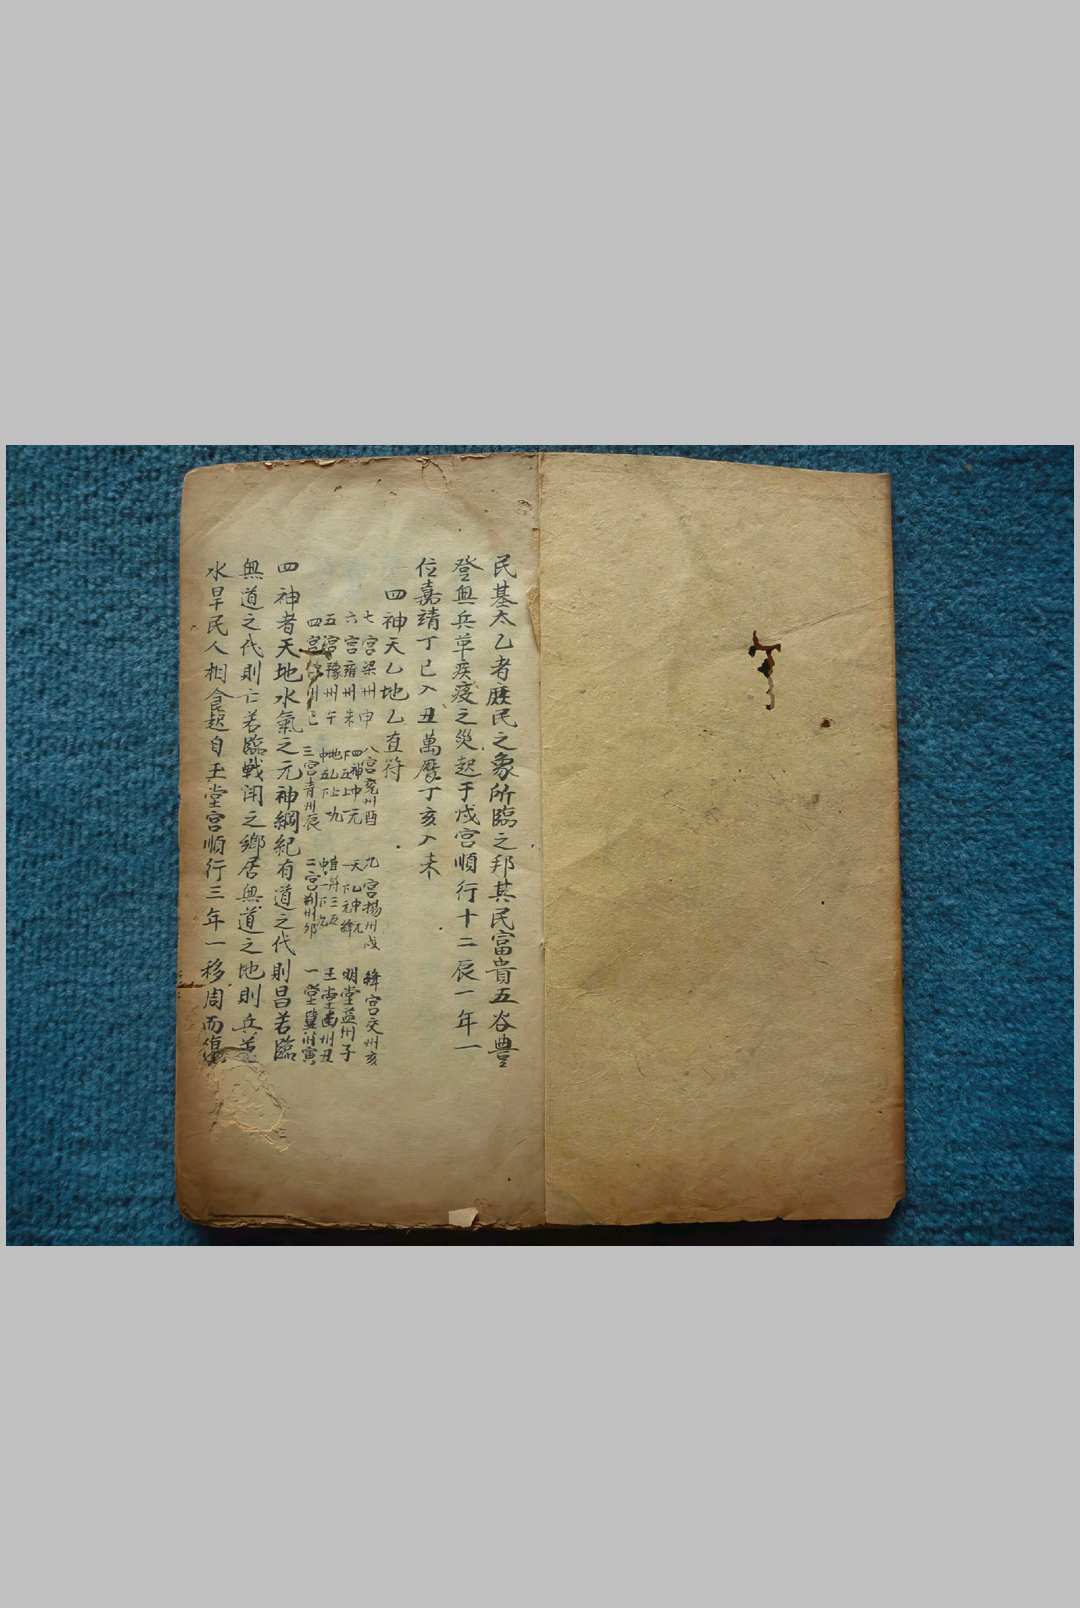 民基太乙者庶民之象所臨之邦其民富貴五谷豊
登無兵草疾疫之災起于戍宮順行十二辰一年一
位嘉靖丁巳入丑萬曆丁亥入未
四神天乙地乙直符
七宮梁州申 八宮兖州酉 九宮揚州戍 絳宮交州亥
六宮雍州未 四神中元 天乙中元 明堂益州子
五宮豫州午 地乙 直符 玉堂幽州丑
四宮 州巳 三宮青州辰 二宮荆州夘 一堂冀州寅
四神者天地水氣之元神綱紀有道之代則昌若臨
無道之代則亡若臨戰闘之鄉居無道之地則兵
水旱民人相食起自玉堂宮順行三年一移周而復